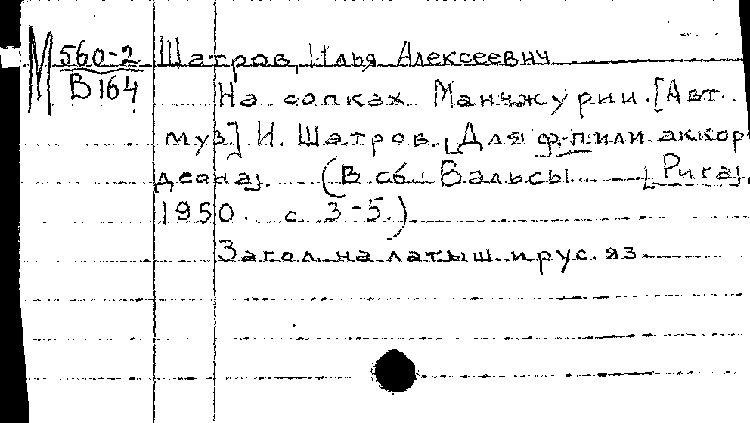 М 560-2 Шатров, Илья Алексеевич
В164
На сопках Манчжурии. [Авт.
муз.] И. Шатров. [Для ф-п. или аккор
деона]. (В сб.: Вальсы [Рига],
1950. с. 3-5.)
Загол. на латыш. и рус. яз.